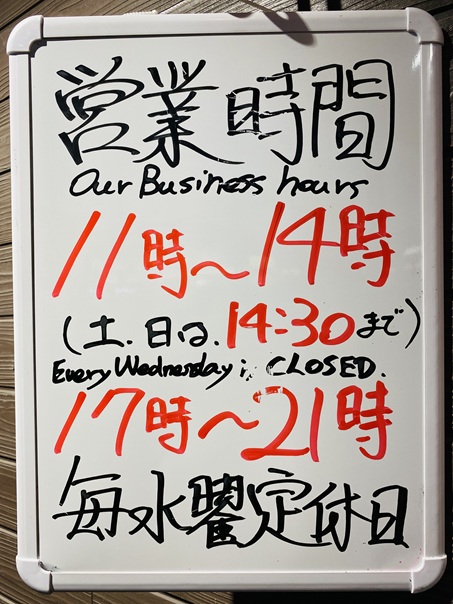 営業時間
Our Business hours
11時～14時
(土.日は.14:30まで)
Every Wednesday is CLOSED.
17時～21時
毎水曜定休日